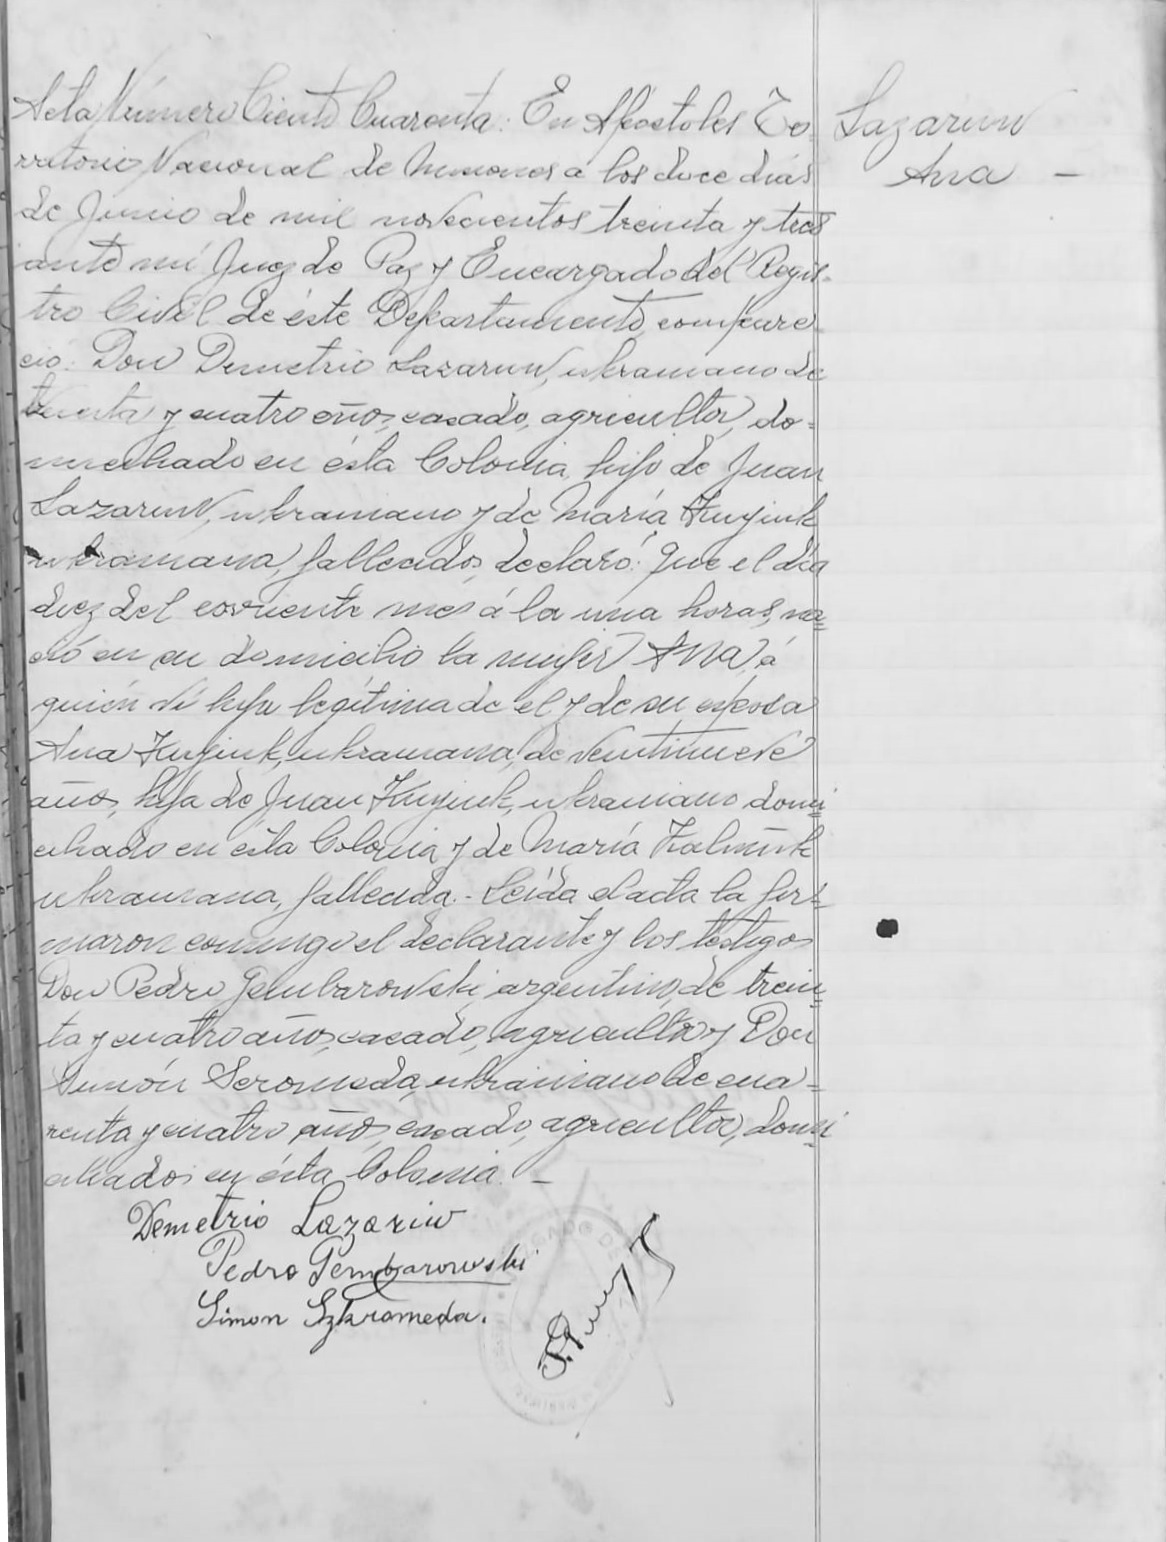 Acta Número Ciento Cuarenta: En Apóstoles Te-
rritorio Nacional de Misiones a los doce dias
de Junio de mil novecientos treinta y tres
ante mi Juez de Paz y Encargado del Regis-
tro Civil de éste Departamento, compare
ció: Don Demetrio Lazaruw, ukraniano de
treinta y cuatro años, casado, agricultor, do-
miciliado en ésta Colonia, hijo de Juan
Lazaruw, ukraniano y de María
ukraniana, fallecidos, declaró: Que el día
diez del corriente mes á la una horas, na-
ció en su domicilio la mujer Ana, á
quién vi hija legítima de el y de su esposa
Ana ukraniana, de veintinueve
años, hija de Juan ukraniano domi
ciliado en ésta Colonia y de María
ukraniana, fallecida.- Leída el acta la fir-
maron conmigo el declarante y los testigos
Don Pedro Gembarowski, argentino, de trein-
ta y cuatro años, casado, agricultor y Don
Simón Seromeda, ukraniano de cua-
renta y cuatro años, casado, agricultor, domi
ciliados en ésta Colonia. -
Demetrio Lazariw
Pedro Gembarowski
Simon Szkromeda.
Lazaruw
Ana -